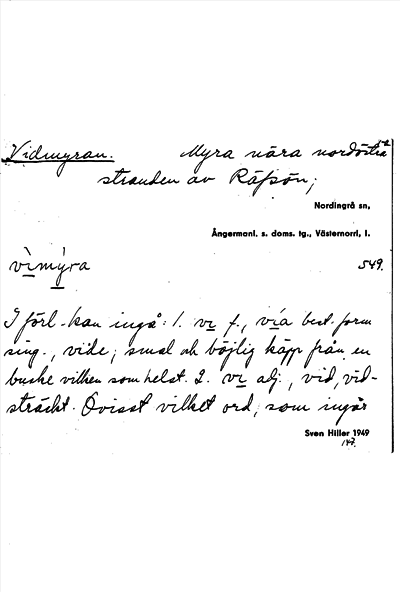 Vidmyran. Myra nära nordöstra
stranden av Räfsön;
Nordingrå sn,
Ångermanl. s. doms. tg., Västernorrl, l.
vìmýra 549.
I förl. kan ingå: 1. vi f., vía best. form
sing., vide; smal och böjlig käpp från en
buske vilken som helst. 2. vi adj., vid, vid-
sträckt. Ovisst vilket ord, som ingår
Sven Hiller 1949